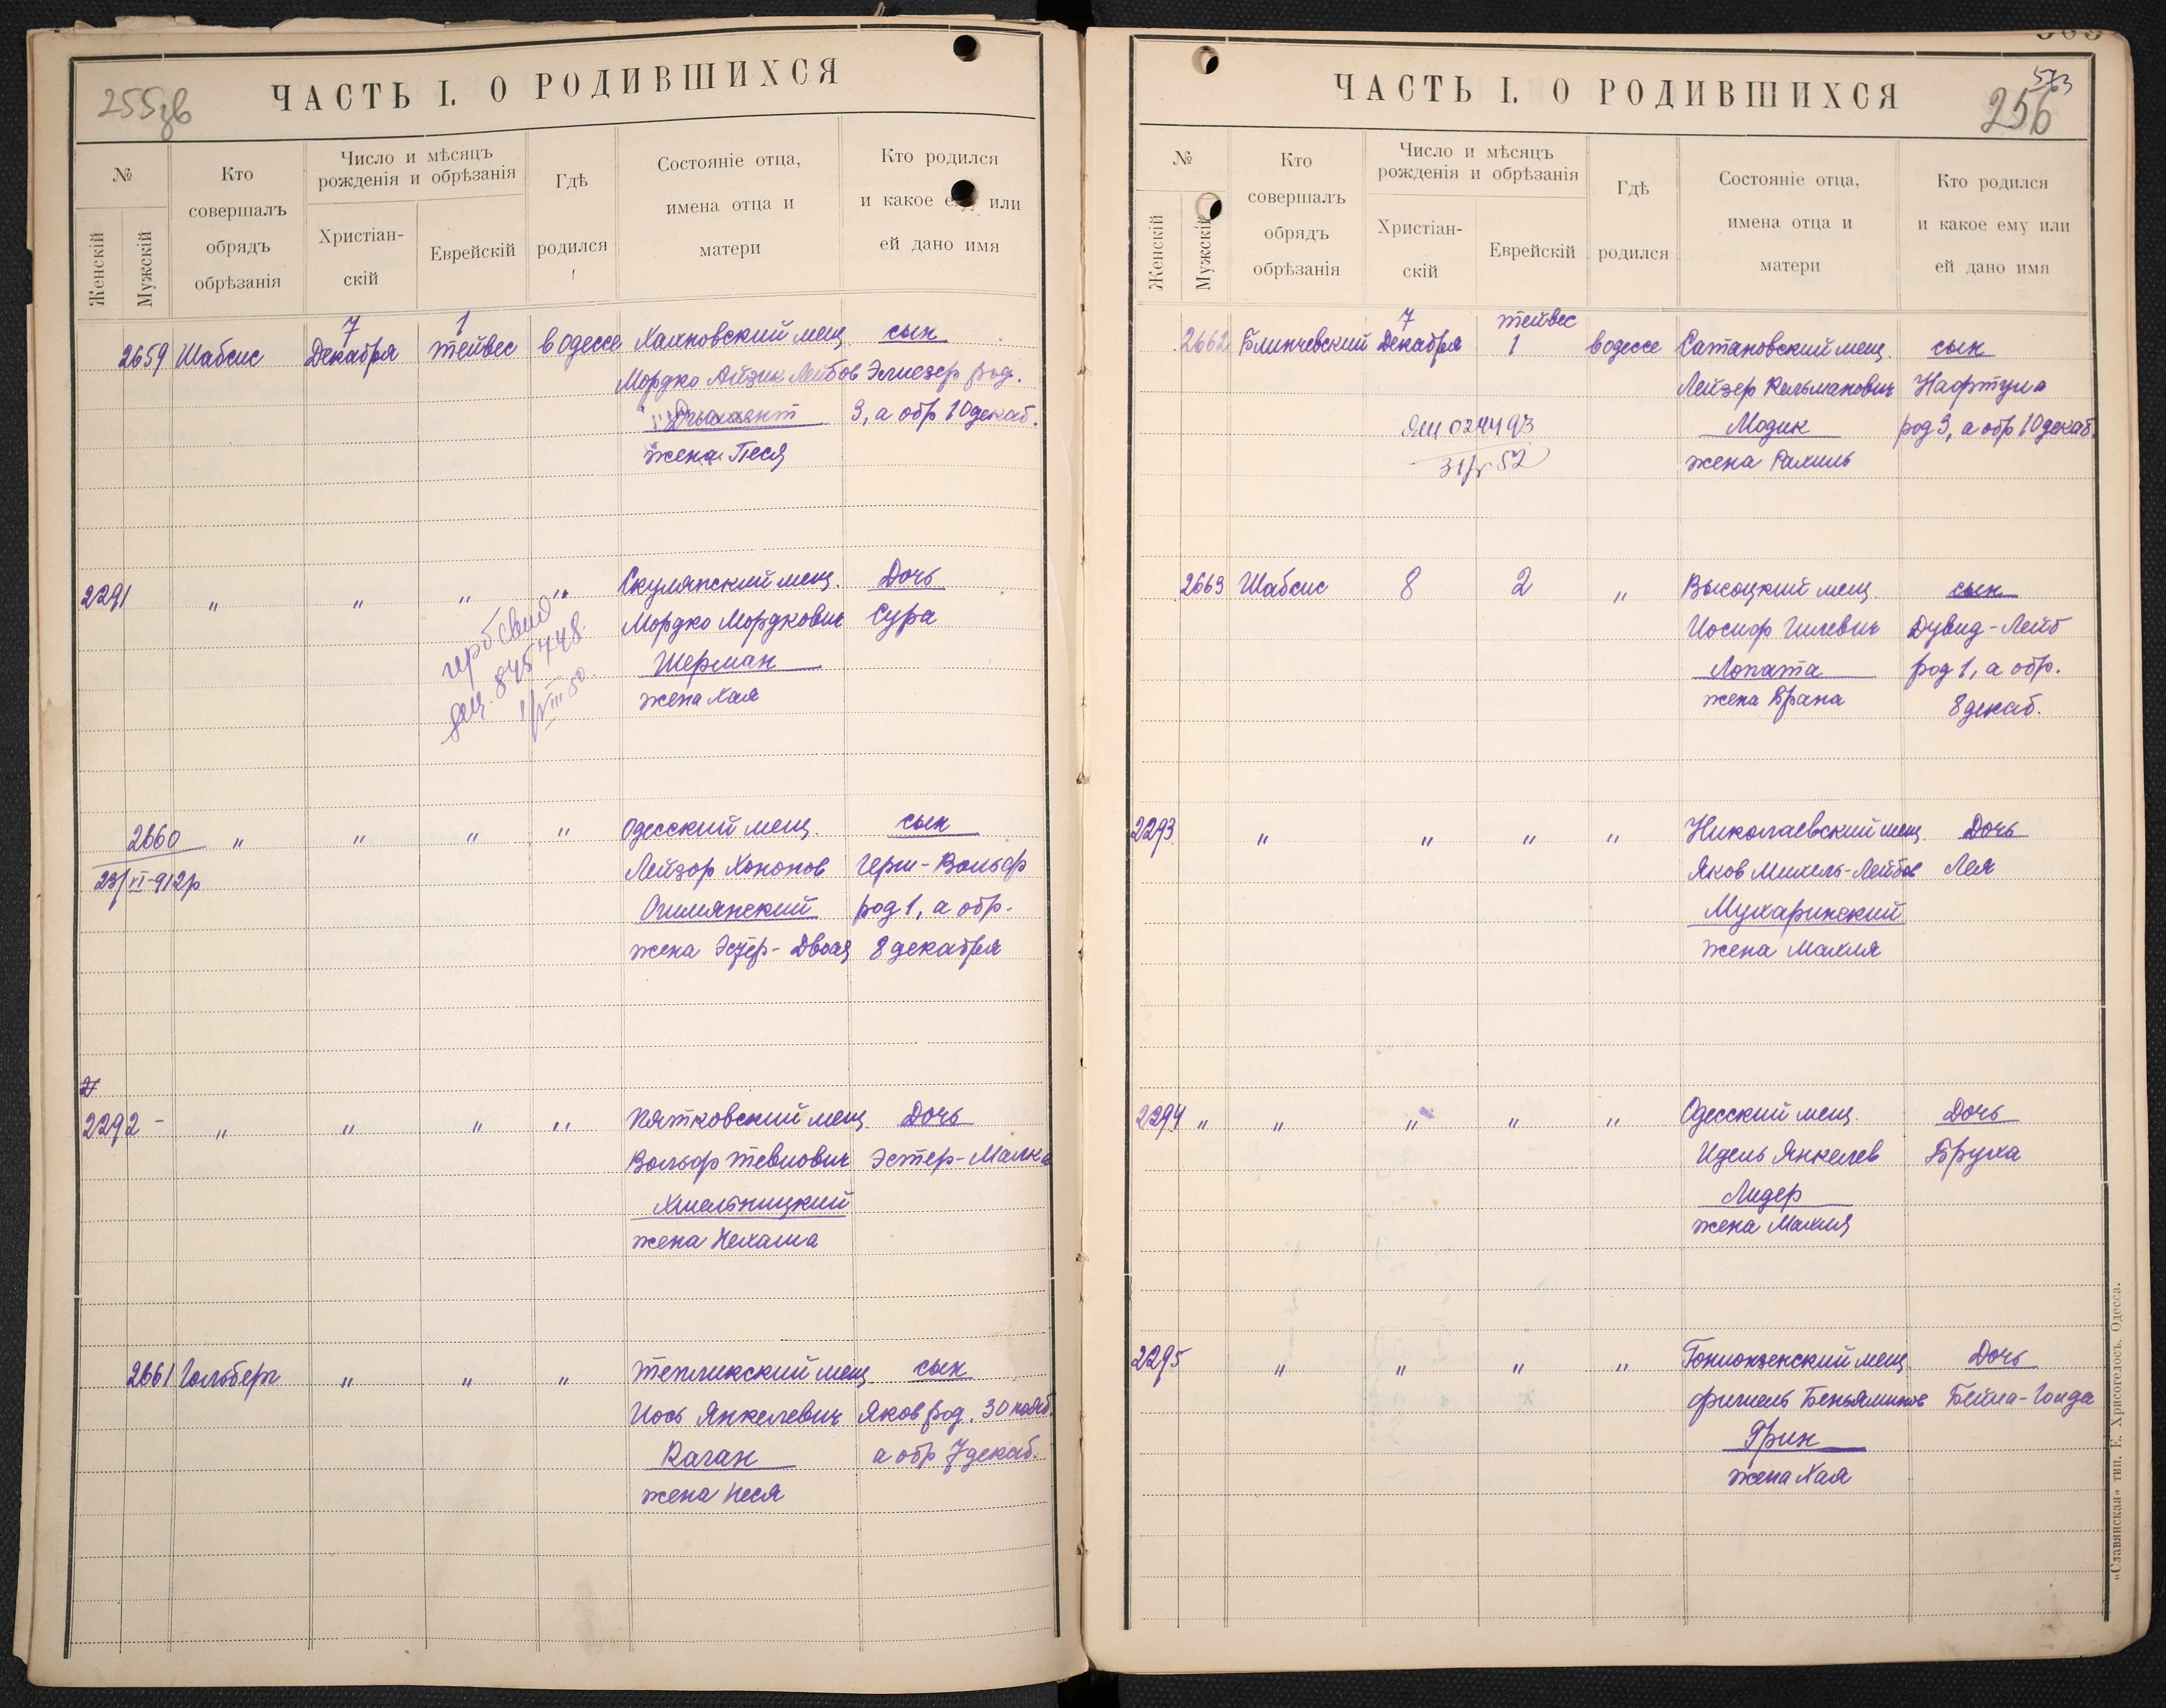 255зв
ЧАСТЬ I. О РОДИВШИХСЯ
№
Женскій
Мужскій
Кто совершалъ обрядъ обрѣзанія
Число и мѣсяцъ рожденія и обрѣзанія
Христіан-скій
Еврейскій
Гдѣ родился
Состояніе отца, имена отца и матери
Кто родился и какое ему или ей дано имя
7 1
2659 Шабсис Декабря тейвес в Одессе Хашковский мещ. сын
Мордко Айзик Лейбов Элиезер род.
3, а обр 10 декаб.
жена Песя
2291 " " " " Скулянский мещ. Дочь
Мордко Мордкович Сура
Шерман
жена Хая
герб свид
845748.
1/VIII 50.
2660 " " " " Одесский мещ. сын
23/VI-912р Лейзор Хононов Герш-Вольф
род 1, а обр.
жена Эстер-Двойя 8 декабря
2292 - " " " " Пятковский мещ. Дочь
Вольф Тевиович Эстер-Малка
Хмельницкий
жена Нехама
2661 Гольберг " " " Тепликский мещ. сын
Иось Янкелевич Яков род. 30 нояб.
Каган а обр 7 декаб.
жена Песя
573
256
ЧАСТЬ I. О РОДИВШИХСЯ
№
Женскій
Мужскій
Кто совершалъ обрядъ обрѣзанія
Число и мѣсяцъ рожденія и обрѣзанія
Христіан-скій
Еврейскій
Гдѣ родился
Состояніе отца, имена отца и матери
Кто родился и какое ему или ей дано имя
7 тейвес
2662 Блинчевский Декабря 1 в Одессе Сатановский мещ. сын
Лейзер Кальманович Нафтула
Модик род 3, а обр 10 декаб.
жена Рахиль
024493
2663 Шабсис 8 2 " Высоцкий мещ. сын
Иосиф Гилевич Дувид-Лейб
Лопата род 1, а обр.
жена Брана 8 декаб.
2293 " " " " Николаевский мещ. Дочь
Яков Михель-Лейбов Лея
Мухаринский
жена Махля
2294 " " " " " Одесский мещ. Дочь
Идель Янкелев Бруха
Лидер
жена Махля
2295 " " " " Гониондзенский мещ. Дочь
Фишель Беньяминов Бейла-Голда
Грин
жена Хая
«Славянская» тип. Е. Хрисогелосъ. Одесса.